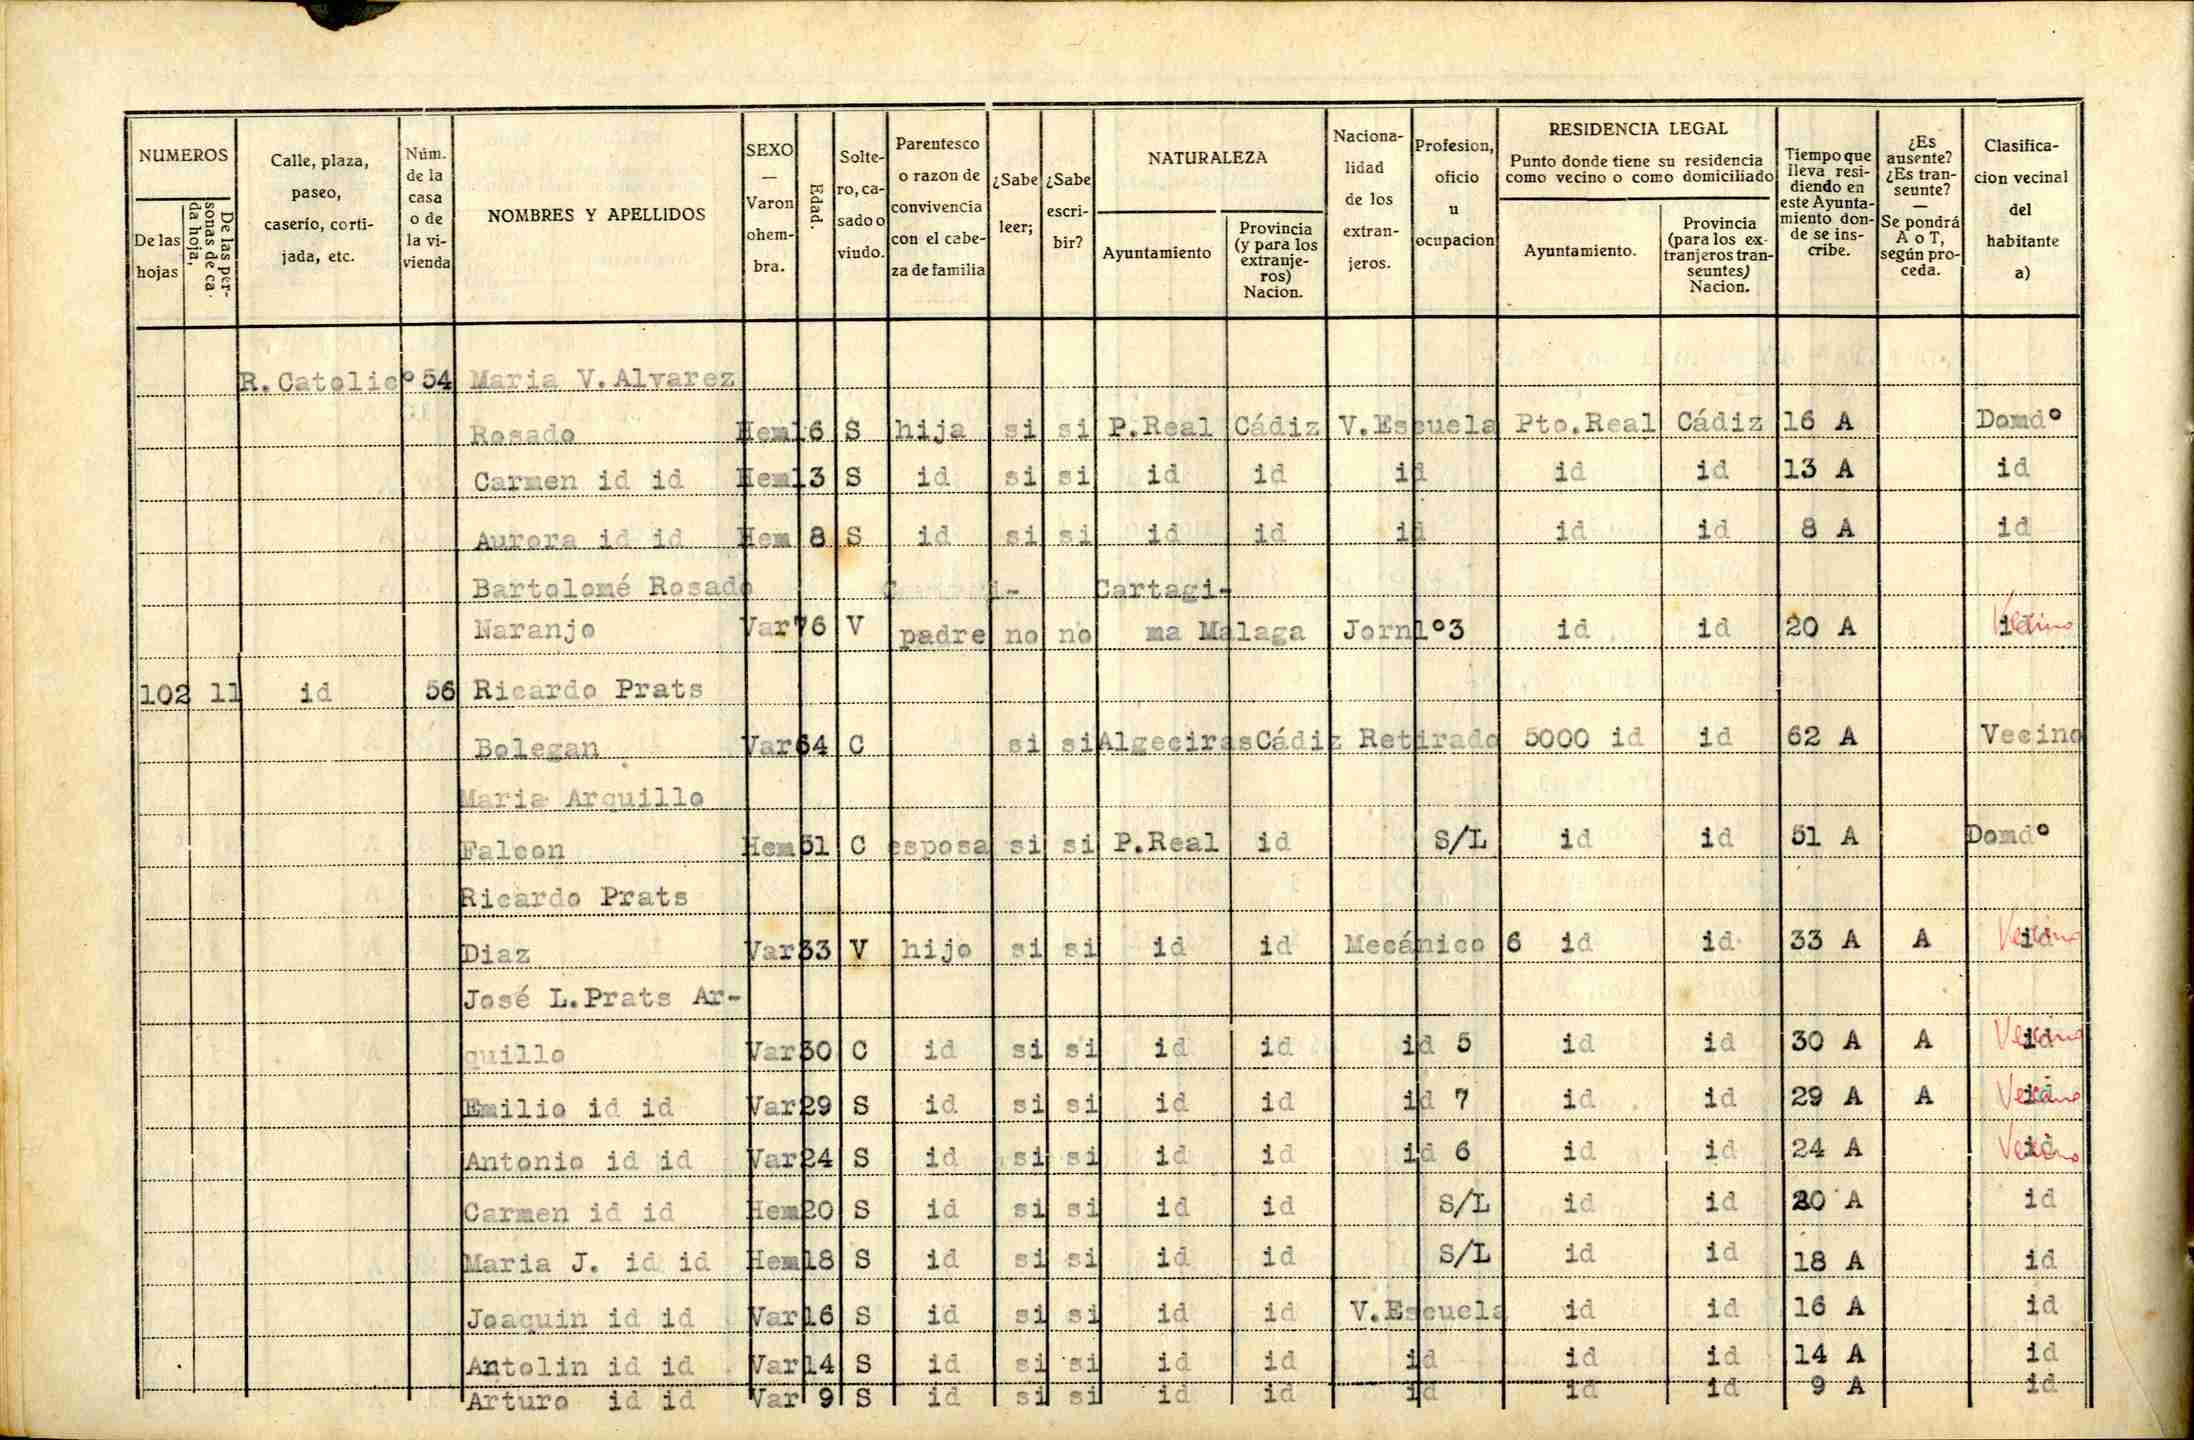 NUMEROS
De las hojas
De las personas de cada hoja,
Calle, plaza, paseo, caserío, cortijada, etc.
Núm. de la casa o de la vivienda
NOMBRES Y APELLIDOS
SEXO — Varon ohembra.
Edad.
Soltero, casado o viudo.
Parentesco o razon de convivencia con el cabeza de familia
¿Sabe leer;
¿Sabe escribir?
NATURALEZA
Ayuntamiento
Provincia (y para los extranjeros) Nacion.
Nacionalidad de los extranjeros.
Profesion, oficio u ocupacion
RESIDENCIA LEGAL
Punto donde tiene su residencia como vecino o como domiciliado
Ayuntamiento.
Provincia (para los extranjeros transeuntes) Nacion.
Tiempo que lleva residiendo en este Ayuntamiento donde se inscribe.
¿Es ausente? ¿Es transeunte? — Se pondrá A o T, según proceda.
Clasificacion vecinal del habitante a)
R.Catolicº 54 Maria V.Alvarez
Rosado Hem 16 S hija si si P.Real Cádiz V.Escuela Pto.Real Cádiz 16 A Domdº
Carmen id id Hem 13 S id si si id id id id id 13 A id
Aurora id id Hem 8 S id si si id id id id id 8 A id
Bartolomé Rosado Cartagi-
Naranjo Var 76 V padre no no ma Malaga Jornlº3 id id 20 A id Vecino
102 11 id 56 Ricardo Prats
Bolegan Var 64 C si si Algeciras Cádiz Retirado 5000 id id 62 A Vecino
Maria Arquillo
Falcon Hem 51 C esposa si si P.Real id S/L id id 51 A Domdº
Ricardo Prats
Diaz Var 33 V hijo si si id id Mecánico 6 id id 33 A A id Vecino
José L.Prats Ar-
quillo Var 30 C id si si id id id 5 id id 30 A A id Vecino
Emilio id id Var 29 S id si si id id id 7 id id 29 A A id Vecino
Antonio id id Var 24 S id si si id id id 6 id id 24 A id Vecino
Carmen id id Hem 20 S id si si id id S/L id id 20 A id
Maria J. id id Hem 18 S id si si id id S/L id id 18 A id
Joaquin id id Var 16 S id si si id id V.Escuela id id 16 A id
Antolin id id Var 14 S id si si id id id id id 14 A id
Arturo id id Var 9 S id si si id id id id id 9 A id